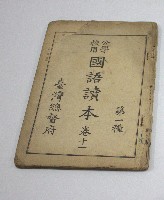 公學校用
國語讀本 卷上
第一種
臺灣總督府